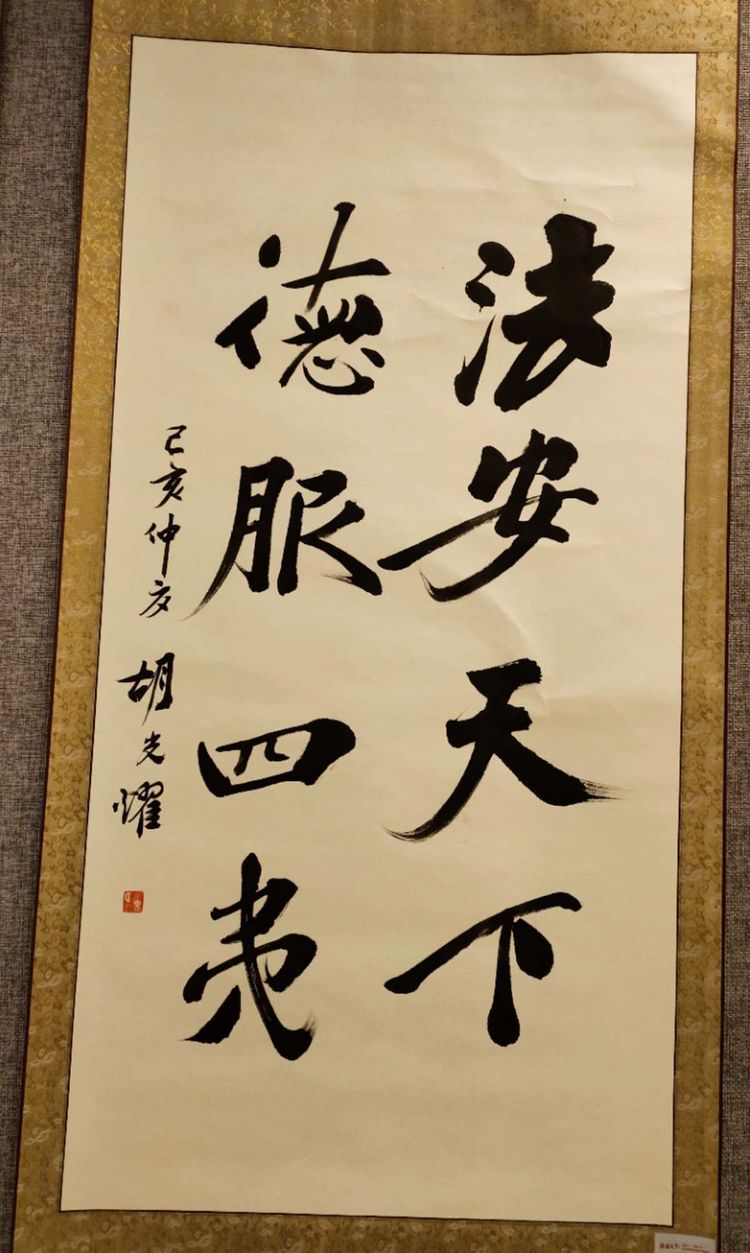 法安天下
德服四夷
己亥仲夜
胡光耀